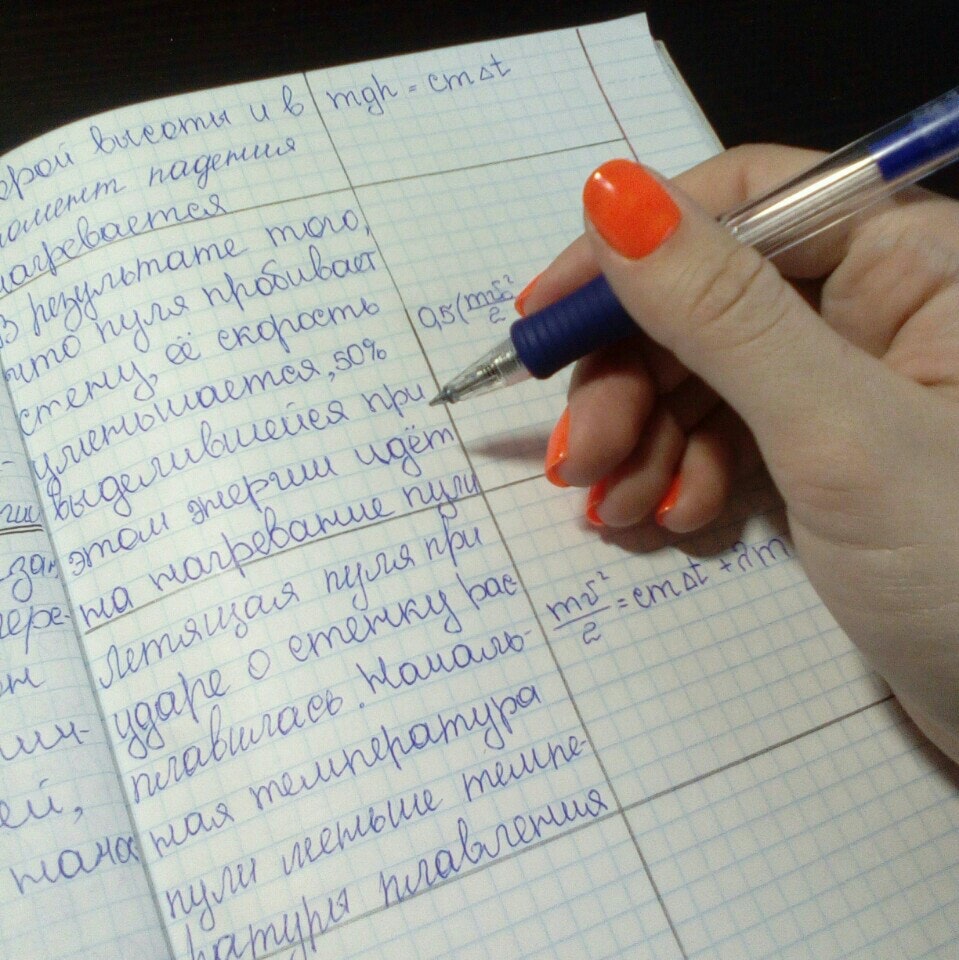 орой высоты и в
момент падения
нагревается
mgh = cmΔt
В результате того,
что пуля пробивает
стену, её скорость
уменьшается, 50%
выделившейся при
этом энергии идёт
на нагревание пули
0,5(mv₀²/2
Летящая пуля при
ударе о стенку рас-
плавилась. Началь-
ная температура
пули меньше темпе-
ратуры плавления
mv²/2 = cmΔt + λm